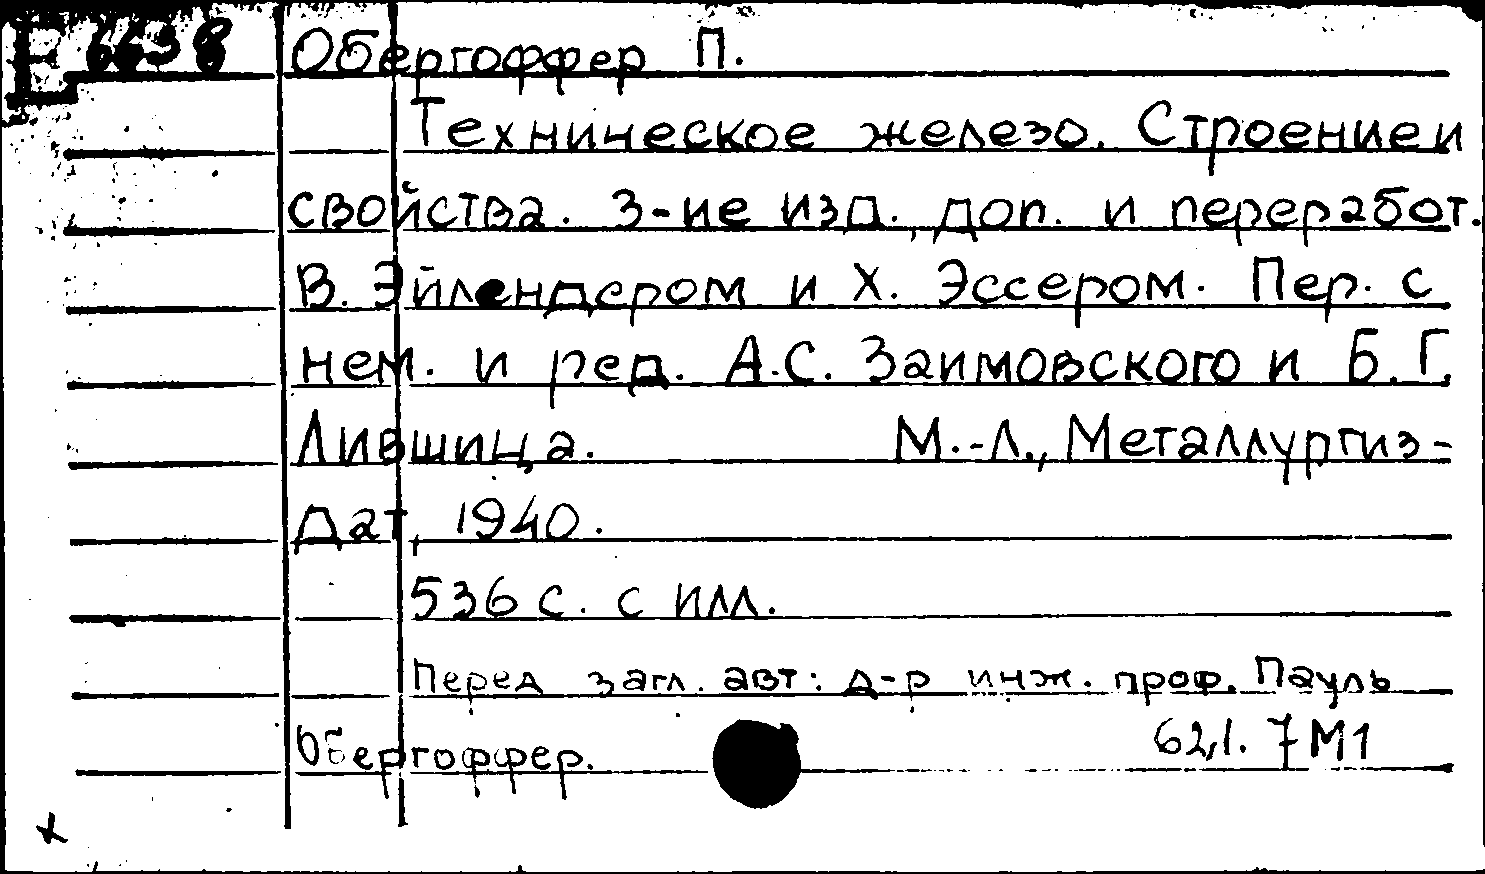 6638 Обергоффер П.
Техническое железо. Строение и
свойства. 3-ие изд., доп. и переработ.
В. Эйлендером и Х. Эссером. Пер. с
нем. и ред. А.С. Заимовского и Б.Г.
Лившица. М.-Л., Металлургиз-
дат, 1940.
536 с. с илл.
Перед загл. авт: д-р инж. проф. Пауль
Обергоффер. 62,1. 7М1